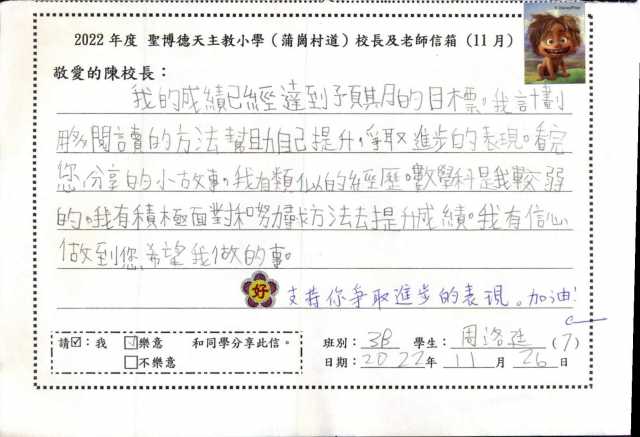 2022 年度 聖博德天主教小學(蒲崗村道)校長及老師信箱 (11 月)
敬愛的陳校長:
我的成績已經達到預期的目標。我計劃
用多閱讀的方法幫助自己提升,爭取進步的表現。看完
您分享的小故事。我有類似的經歷。數學科是我較弱
的。我有積極面對和努力尋找方法去提升成績。我有信心
做到您希望我做的事。
好 支持你爭取進步的表現。加油!
請☑:我 ☑樂意 和同學分享此信。
□不樂意
班別: 3B 學生: 周洛 (7)
日期: 2022年 11 月 26 日